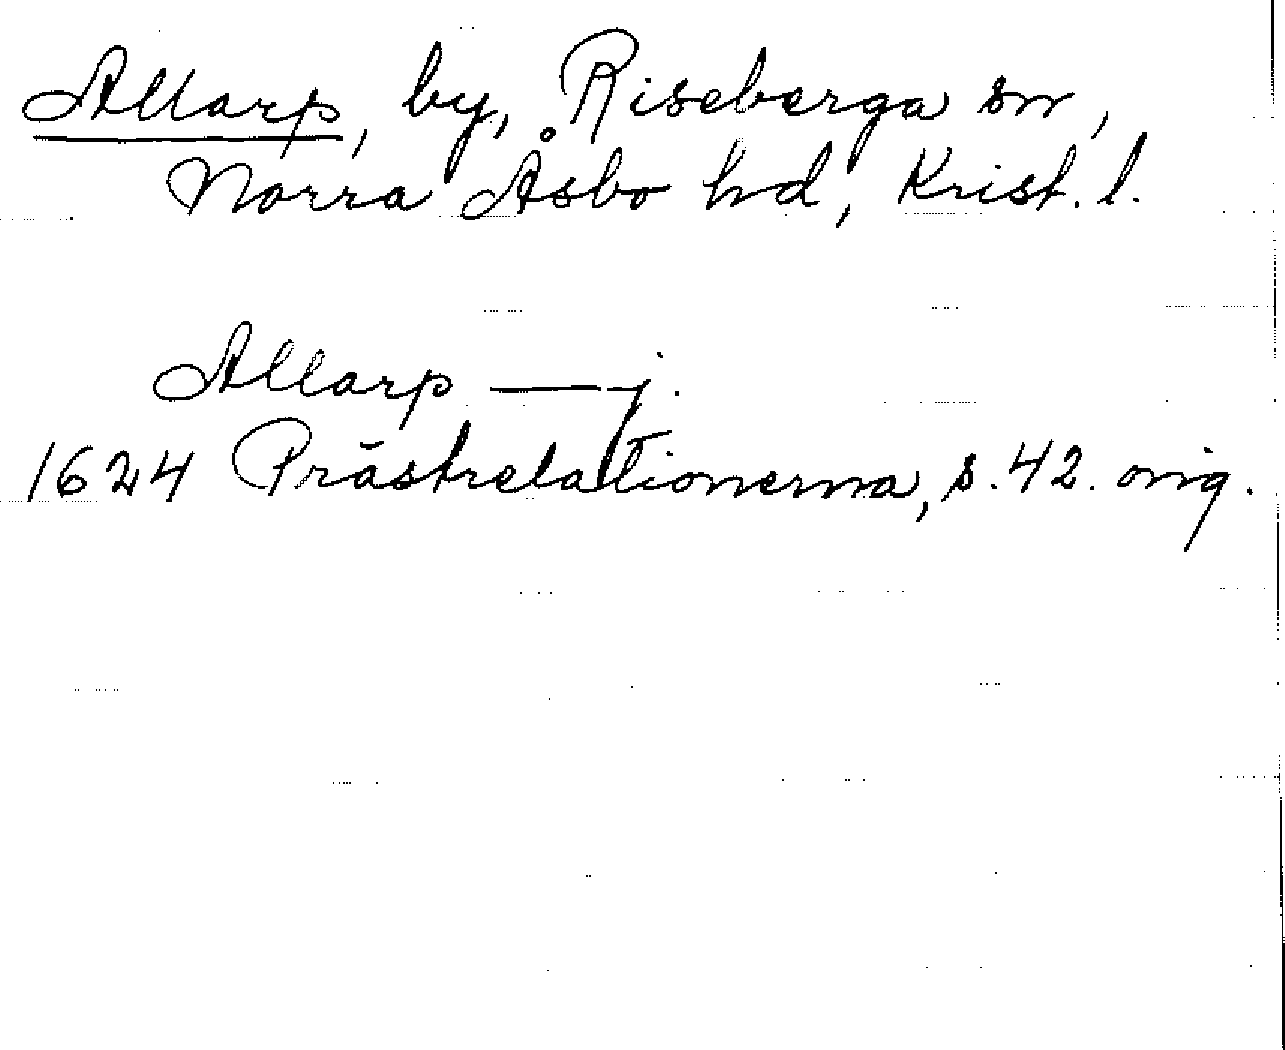 Allarp, by, Riseberga sn,
Norra Åsbo hd, Krist. l.
Allarp — j.
1624 Prästrelationerna, s. 42. orig.